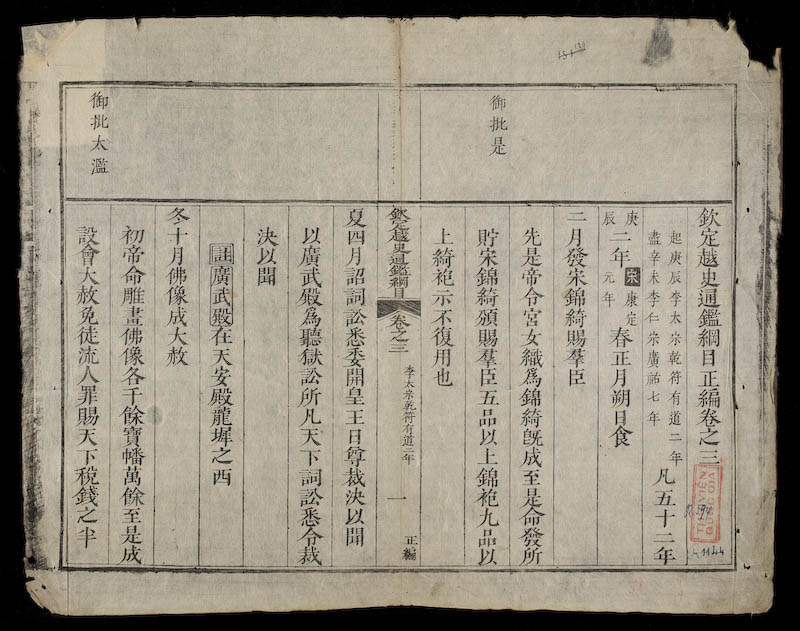 欽定越史通鑑綱目正編卷之三
起庚辰李太宗乾符有道二年
盡辛未李仁宗廣祐七年
凡五十二年
庚辰
二年
宋康定元年
春正月朔日食
二月發宋錦綺賜羣臣
先是帝令宮女織爲錦綺旣成至是命發所
貯宋錦綺頒賜羣臣五品以上錦袍九品以
上綺袍示不復用也
御批是
欽定越史通鑑綱目
卷之三
李太宗乾符有道二年
一
正編
夏四月詔詞訟悉委開皇王日尊裁決以聞
以廣武殿爲聽獄訟所凡天下詞訟悉令裁
決以聞
註廣武殿在天安殿龍墀之西
冬十月佛像成大赦
初帝命雕畫佛像各千餘寶幡萬餘至是成
設會大赦免徒流人罪賜天下稅錢之半
御批太濫
THƯ VIỆN
QUỐC GIA